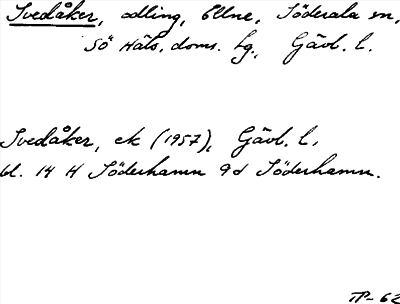 Svedåker, odling, Ellne, Söderala sn,
Sö Häls. doms. hg., Gävl. l.
Svedåker, ek (1957), Gävl. l.
bl. 14 H Söderhamn 9d Söderhamn.
TP-62